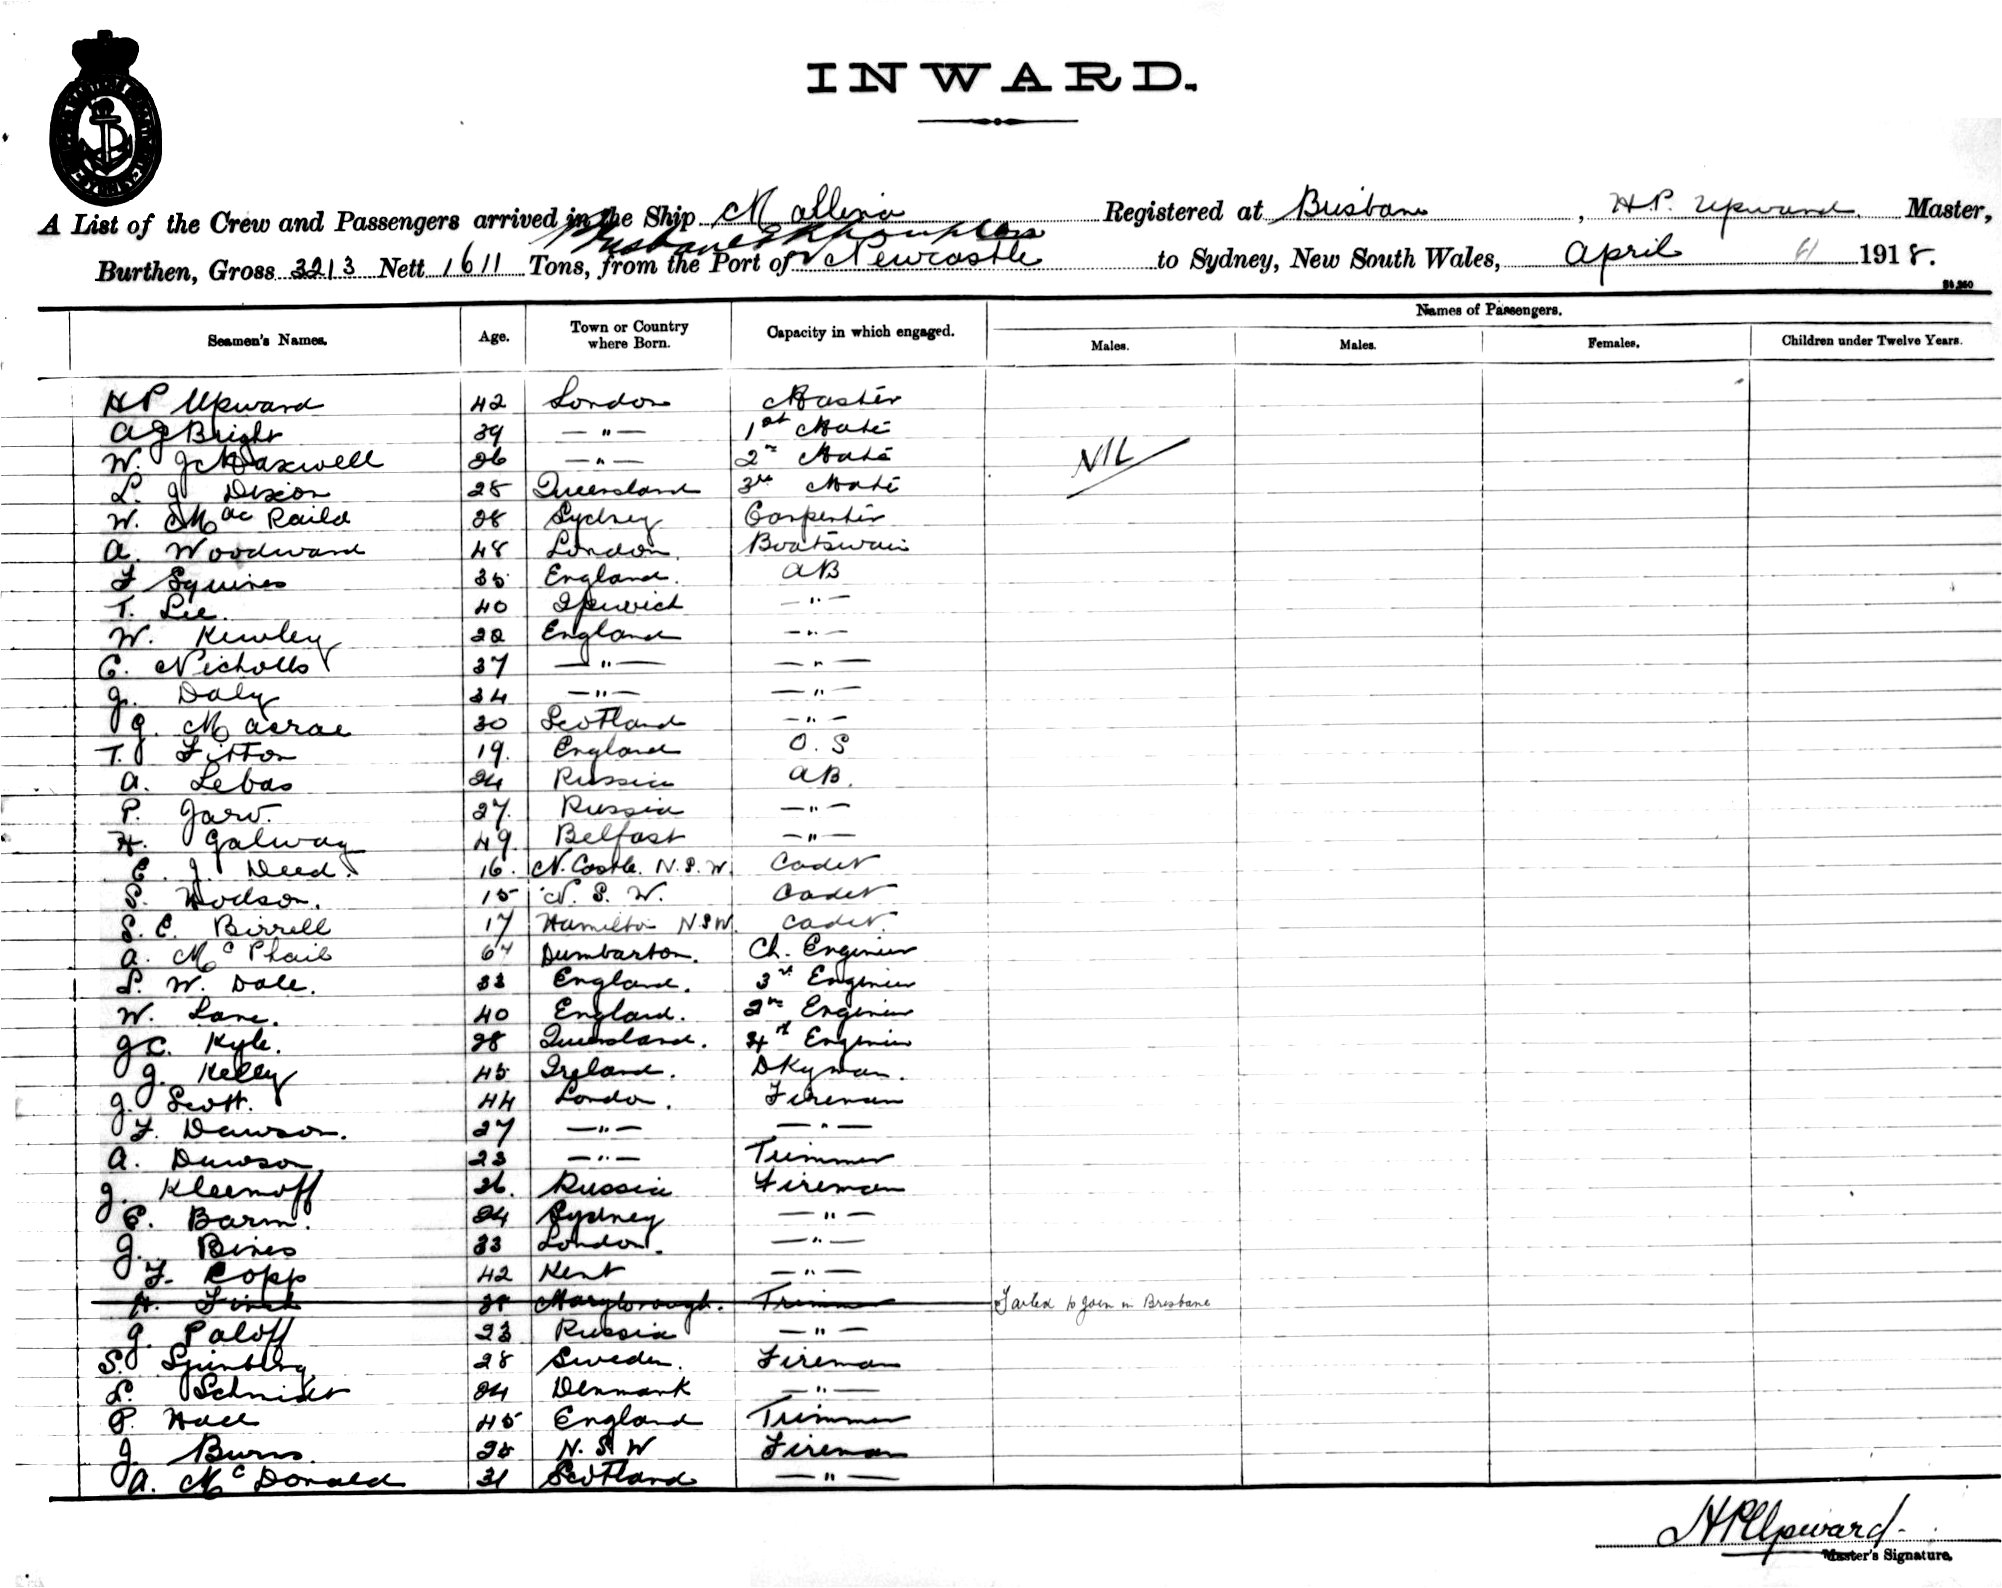 INWARD.
A List of the Crew and Passengers arrived in the Ship Mallina Registered at Brisbane, H.P. Upward. Master,
Brisbane &
Burthen, Gross 3213 Nett 1611 Tons, from the Port of Newcastle to Sydney, New South Wales, April 1918.
Names of Passengers.
Seamen's Names. Age. Town or Country where Born. Capacity in which engaged. Males. Males. Females. Children under Twelve Years.
H P Upward 42 London Master
A J Bright 39 —"— 1st Mate
W. J Maxwell 26 —"— 2nd Mate NIL
L. J Dixon 28 Queensland 3rd Mate
W. Mac Raild 28 Sydney Carpenter
A. Woodward 48 London. Boatswain
F Squires 35 England. AB
T. Lee. 40 Ipswich —"—
W. Kewley 22 England —"—
C. Nicholls 37 —"— —"—
J. Daly 34 —"— —"—
J. Macrae 30 Scotland —"—
T. Fitton 19. England O. S
A. Lebas 24 Russia AB.
P. Jarv. 27. Russia —"—
H. Galway 49 Belfast —"—
C. J. Deed. 16. N. Castle. N.S.W. Cadet
S. Hodson. 15 N. S. W. Cadet
S. C. Birrell 17 Hamilton N.S.W. Cadet.
A. McPhail 67 Dumbarton. Ch. Engineer
S. W. Dale. 33 England. 3rd Engineer
W. Lane. 40 England. 2nd Engineer
J C. Kyle. 28 Queensland. 4th Engineer
J. Kelly 45 Ireland. Dkyman.
J. Scott. 44 London. Fireman
F. Dawson. 27 —"— —"—
A. Dawson 23 —"— Trimmer
J. Kleenoff 26. Russia Fireman
E. Barm. 24 Sydney —"—
J. Bines 33 London. —"—
F. Copp 42 Kent —"—
H. Finch Maryborough. Trimmer Failed to join in Brisbane
J. Paloff 23 Russia —"—
S. Spinberg 28 Sweden. Fireman
L. Schmidt 24 Denmark —"—
P. Hall 45 England Trimmer
J. Burns. 25 N. S W Fireman
A. McDonald 31 Scotland —"—
H P Upward
Master's Signature.